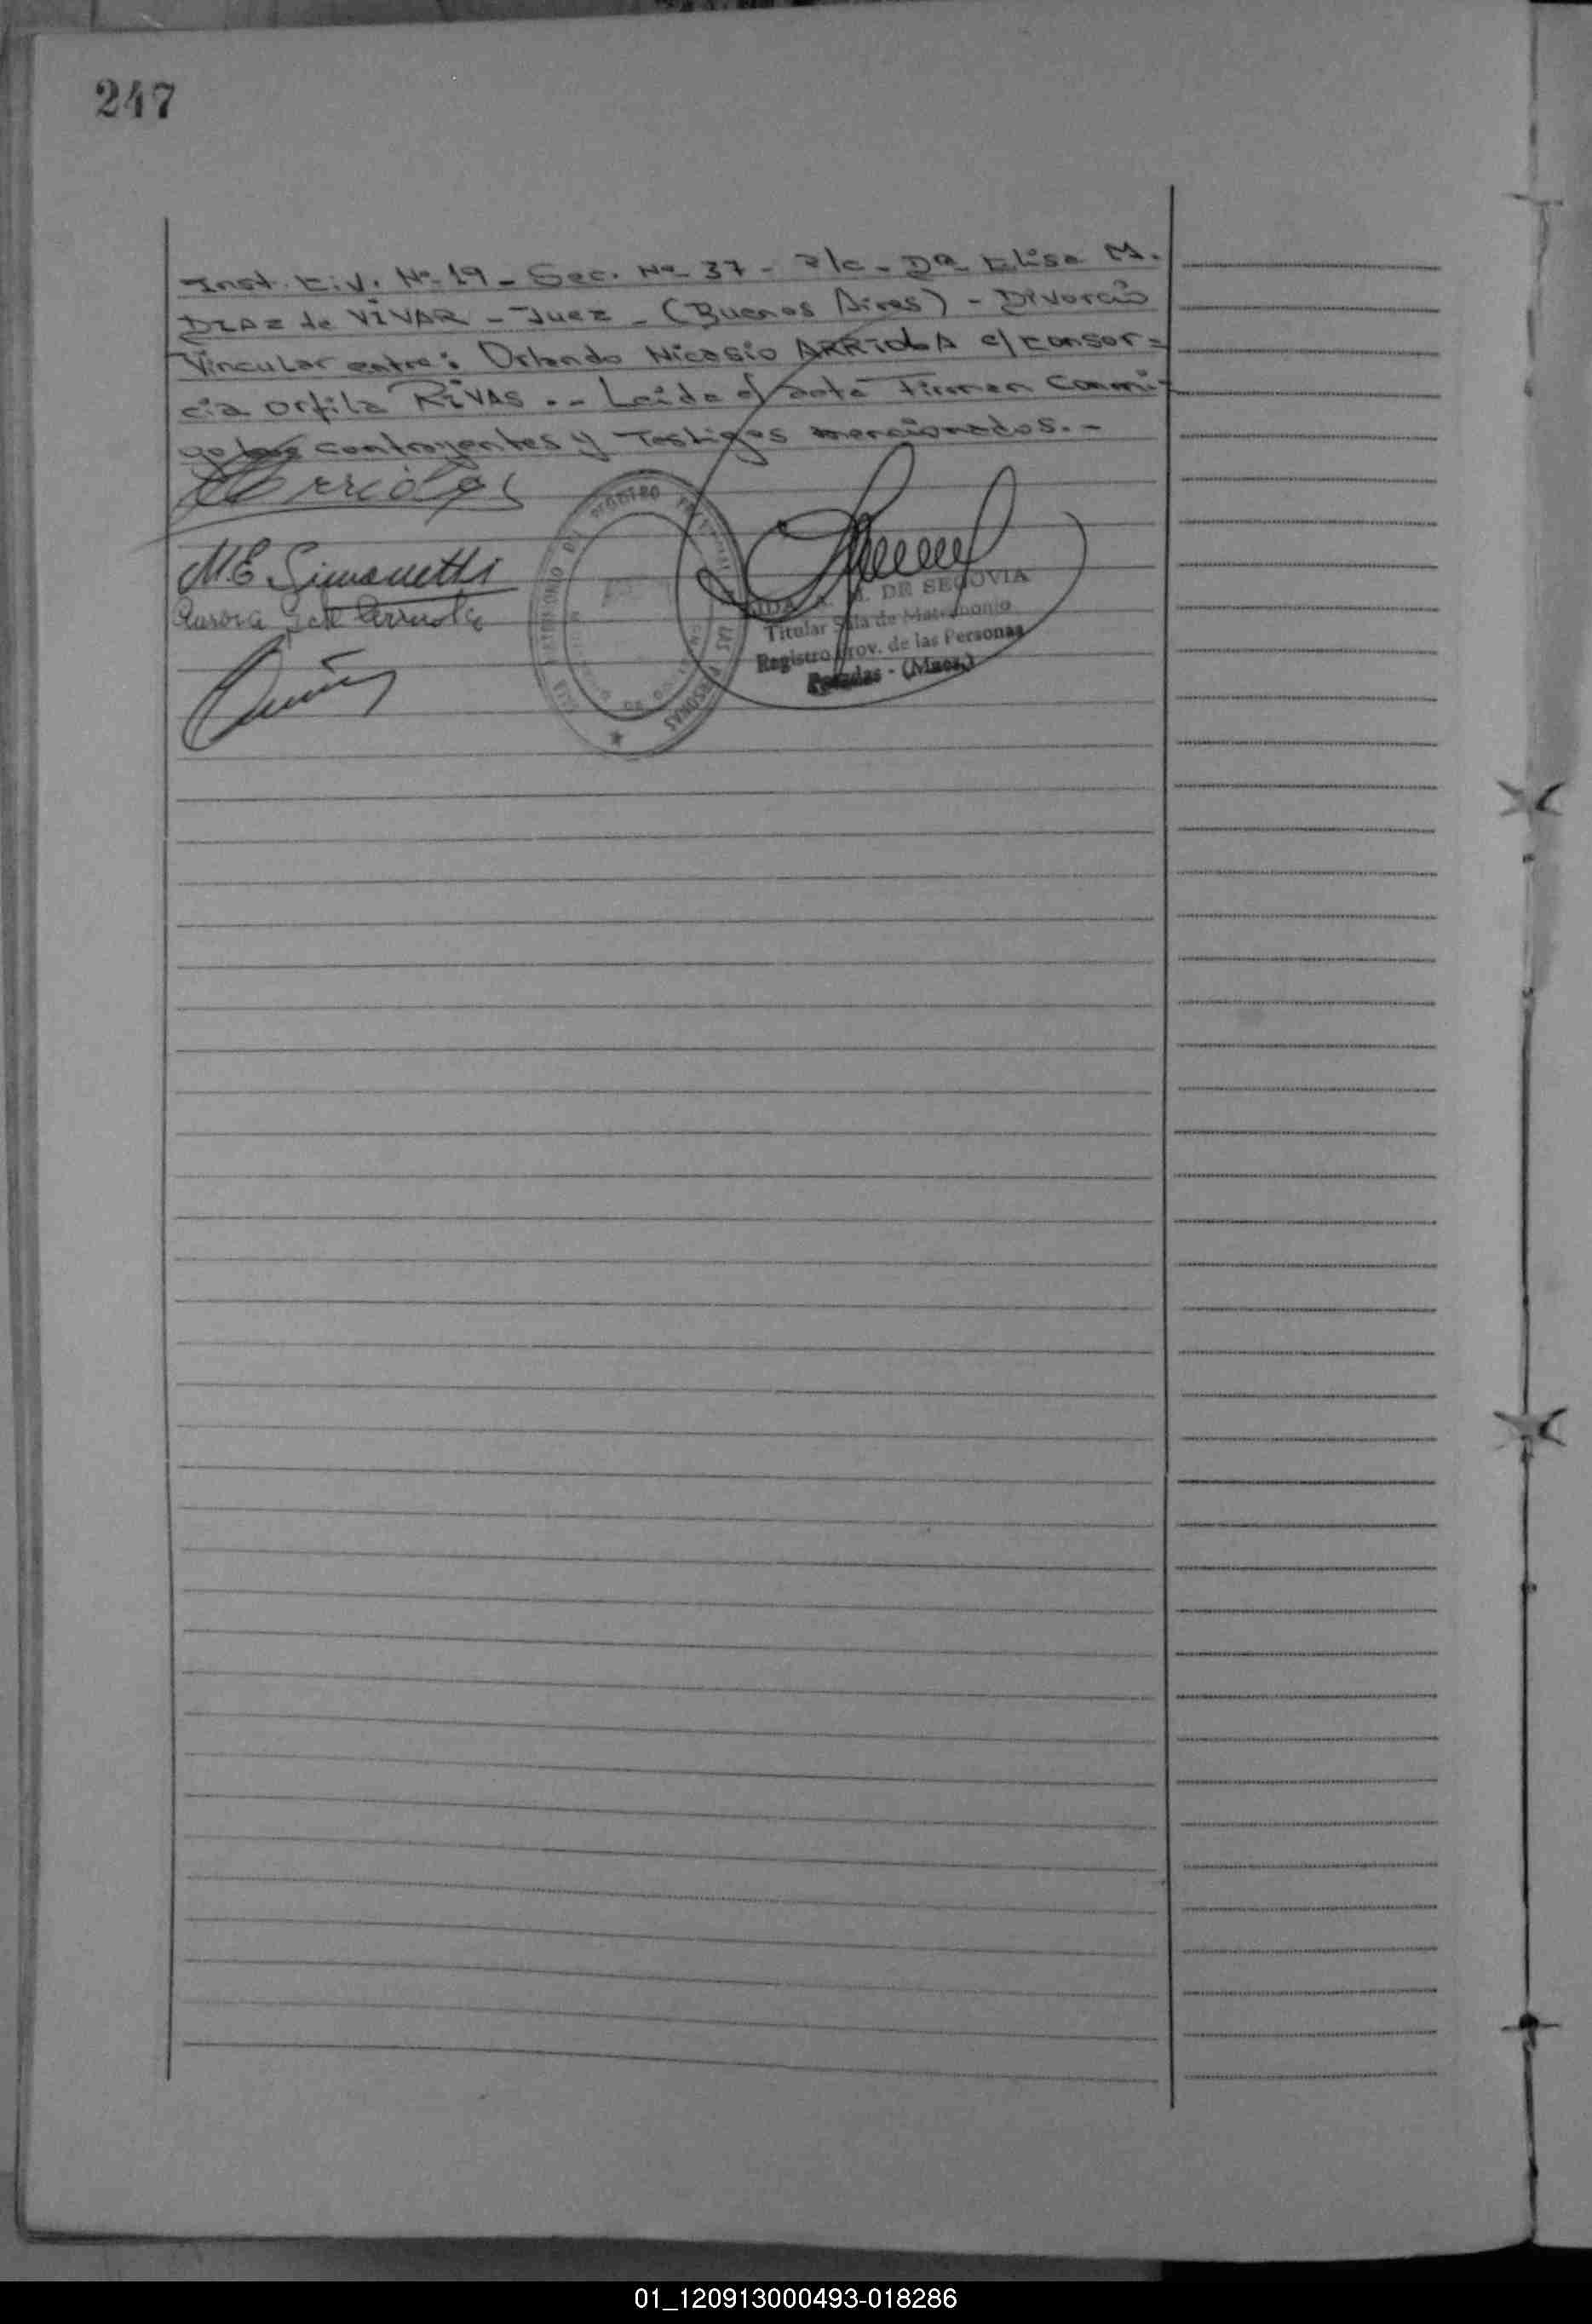 247
Inst. Civ. Nº 19 - Sec. Nº 37 - a/c - Dra Elisa M.
DIAZ de VIVAR - Juez - (Buenos Aires) - Divorcio
Vincular entre: Orlando Nicasio ARRIOLA c/ Consor=
cia Orfila RIVAS .- Leida el acta Firman Conmi-
go los contrayentes y Testigos mencionados.-
M.E. Simonetti
Aurora de Arriola
DE SEGOVIA
Titular Sala de Matrimonio
Registro Prov. de las Personas
Posadas - (Mnes.)
01_120913000493-018286